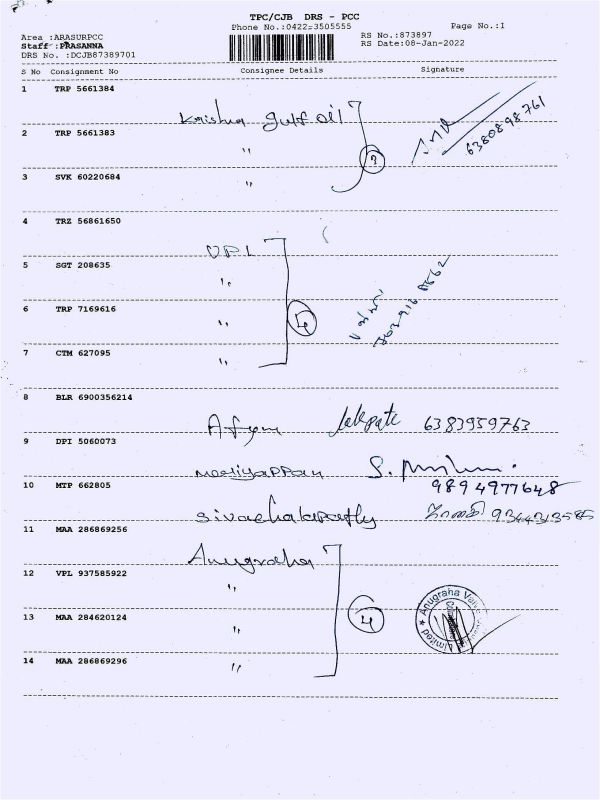 TPC/CJB DRS - PCC
Phone No.:0422-3505555 Page No.:1
Area :ARASURPCC RS No.:873897
Staff :PRASANNA RS Date:08-Jan-2022
DRS No. :DCJB87389701
S No Consignment No Consignee Details Signature
1 TRP 5661384
Krishna gulf oil
2 TRP 5661383
6380898761
"
3 SVK 60220684
"
4 TRZ 56861650
UPL
5 SGT 208635
"
6 TRP 7169616
" 4
7 CTM 627095
"
8 BLR 6900356214
6383959763
9 DPI 5060073
Mariyappan
10 MTP 662805 9894977648
Sivachalapathy
11 MAA 286869256
Anugraha
12 VPL 937585922
"
13 MAA 284620124 4
Anugraha Valve Limited
"
14 MAA 286869296
"